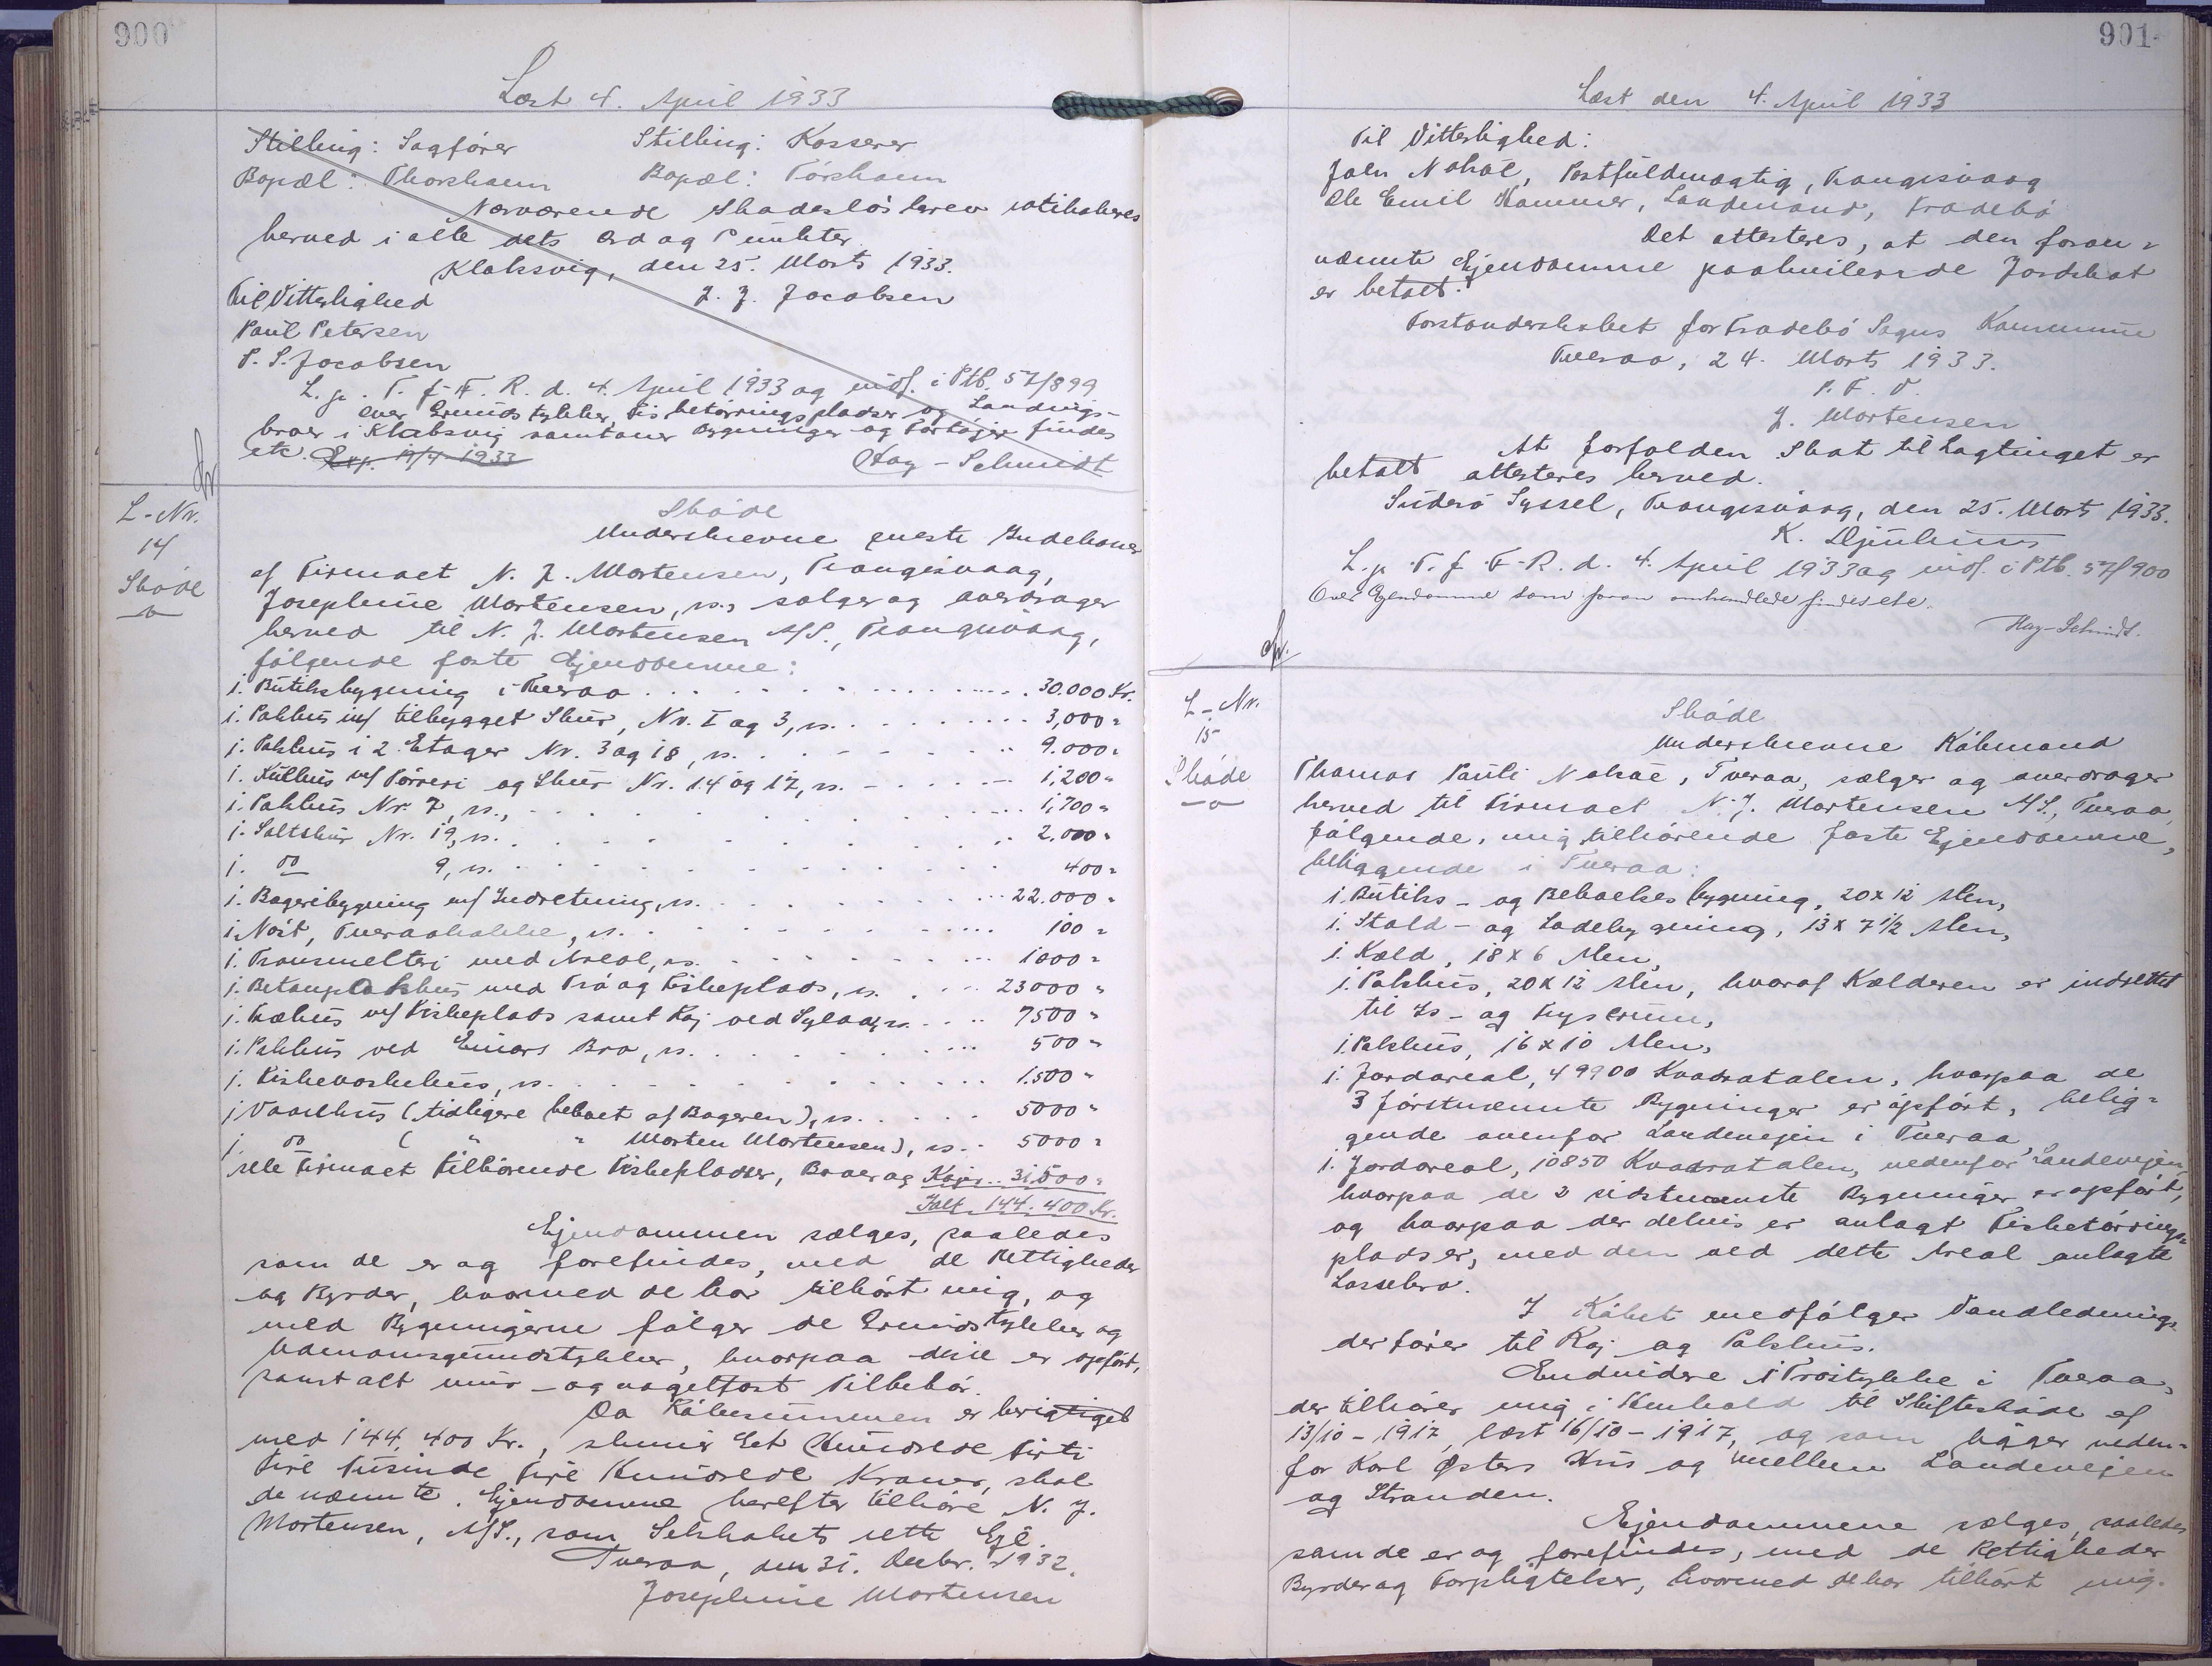 900
Læst 4. April 1933
Stilling: Sagfører Stilling: Kasserer
Bopæl: Thorshavn Bopæl: Tórshavn
Nærværende Skadesløsbrev ratihaberes
herved i alle dets Ord og Punkter
Klaksvig, den 25. Marts 1933.
Til Vitterlighed J. F. Jacobsen
Paul Petersen
P. S. Jacobsen
L. p. T. f. F. R. d. 4. April 1933 og indf. i Ptb. 57/899
Over Grundstykker, Fisketørringspladser og Landings-
broer i Klaksvig samt over Bygninger og Fartøjer findes
etc. Exp. 19/4-1933 Hay-Schmidt
L-Nr.
14
Skøde
Skøde
Underskrevne eneste Indehaver
af Firmaet N. J. Mortensen, Trangisvaag,
Josephine Mortensen, s., sælger og overdrager
herved til N. J. Mortensen A/S., Trangisvaag,
følgende faste Ejendomme:
1. Butiksbygning i Tveraa 30.000 Kr.
1. Pakhus m/ tilbygget Skur, Nr. I og 3, s. 3,000 "
1. Pakhus i 2 Etager Nr. 3 og 18, s. 9.000 "
1. Kulhus m/ Tørreri og Skur Nr. 14 og 17, s. 1,200 "
1. Pakhus Nr. 7, s., 1,700 "
1. Saltskur Nr. 19, s. 2.000 "
1. do 9, s. 400 "
1. Bageribygning m/ Indretning, s. 22.000 "
1. Nøst, Tveraabakke, s. 100 "
1. Transmelteri med Areal, s. 1000 "
1. Betonpakhus med Trø og Fiskeplads, s. 23000 "
1. Træhus m/ Fiskeplads samt Kaj ved s. 7500 "
1. Pakhus ved Einars Bro, s. 500 "
1. Fiskevaskehus, s. 1.500 "
1 Vaanhus (tidligere beboet af Bageren), s. 5000 "
1 do ( " " Morten Mortensen), s. 5000 "
alle Firmaet tilhørende Fiskepladser, Broer og Kajer 31,500 "
Ialt 144.400 Kr.
Ejendommen sælges, saaledes
som de er og forefindes, med de Rettigheder
og Byrder, hvormed de har tilhørt mig, og
med Bygningerne følger de Grundstykker og
Udmarksgrundstykker, hvorpaa disse er opført,
samt alt mur- og nagelfast Tilbehør.
Da Købesummen er berigtiget
med 144,400 Kr., skriver Eet Hundrede firti
fire Tusinde fire Hundrede Kroner, skal
de nævnte Ejendomme herefter tilhøre N. J.
Mortensen, A/S., som Selskabets rette Eje.
Tveraa, den 31. Decbr. 1932.
Josephine Mortensen
901
Læst den 4. April 1933
Til Vitterlighed:
John Nolsøe, Postfuldmægtig, Trangisvaag
Ole Emil Hammer, Landmand, Frodebø
Det attesteres, at den foran-
nævnte Ejendomme paahvilende Jordskat
er betalt.
Forstanderskabet for Frodebø Sogns Kommune
Tveraa, 24. Marts 1933.
P. F. V.
J. Mortensen
At forfalden Skat til Lagtinget er
betalt attesteres herved.
Suderø Syssel, Trangisvaag, den 25. Marts 1933.
K. Djurhuus
L. p. T. f. F. R. d. 4. April 1933 og indf. i Ptb. 57/900
Over Ejendomme som foran omhandlede findes etc.
Hay-Schmidt.
L-Nr.
15
Skøde
Skøde
Underskrevne Købmand
Thomas Pauli Nolsøe, Tveraa, sælger og overdrager
herved til Firmaet N. J. Mortensen A/S., Tveraa,
følgende, mig tilhørende faste Ejendomme,
beliggende i Tveraa:
1. Butiks- og Beboelsesbygning, 20 x 12 Alen,
1. Stald- og Ladebygning, 13 x 7 1/2 Alen,
1. Kæld, 18 x 6 Alen,
1. Pakhus, 20 x 12 Alen, hvoraf Kælderen er indrettet
til Is- og Fryserum,
1. Pakhus, 16 x 10 Alen,
1. Jordareal, 49900 Kvadratalen, hvorpaa de
3 førstnævnte Bygninger er opført, belig-
gende ovenfor Landevejen i Tveraa,
1. Jordareal, 10850 Kvadratalen, nedenfor Landevejen,
hvorpaa de 2 sidstnævnte Bygninger er opført,
og hvorpaa der delvis er anlagt Fisketørrings-
pladser, med den ved dette Areal anlagte
Lossebro.
I Købet medfølger Vandledning,
der fører til Kaj og Pakhus.
Endvidere 1 Trøstykke i Tveraa,
der tilhører mig i Henhold til Skifteskøde af
13/10-1917, læst 16/10-1917, og som ligger neden-
for Karl Østers Hus og mellem Landevejen
og Stranden.
Ejendommene sælges, saaledes
som de er og forefindes, med de Rettigheder
Byrder og Forpligtelser, hvormed de har tilhørt mig.